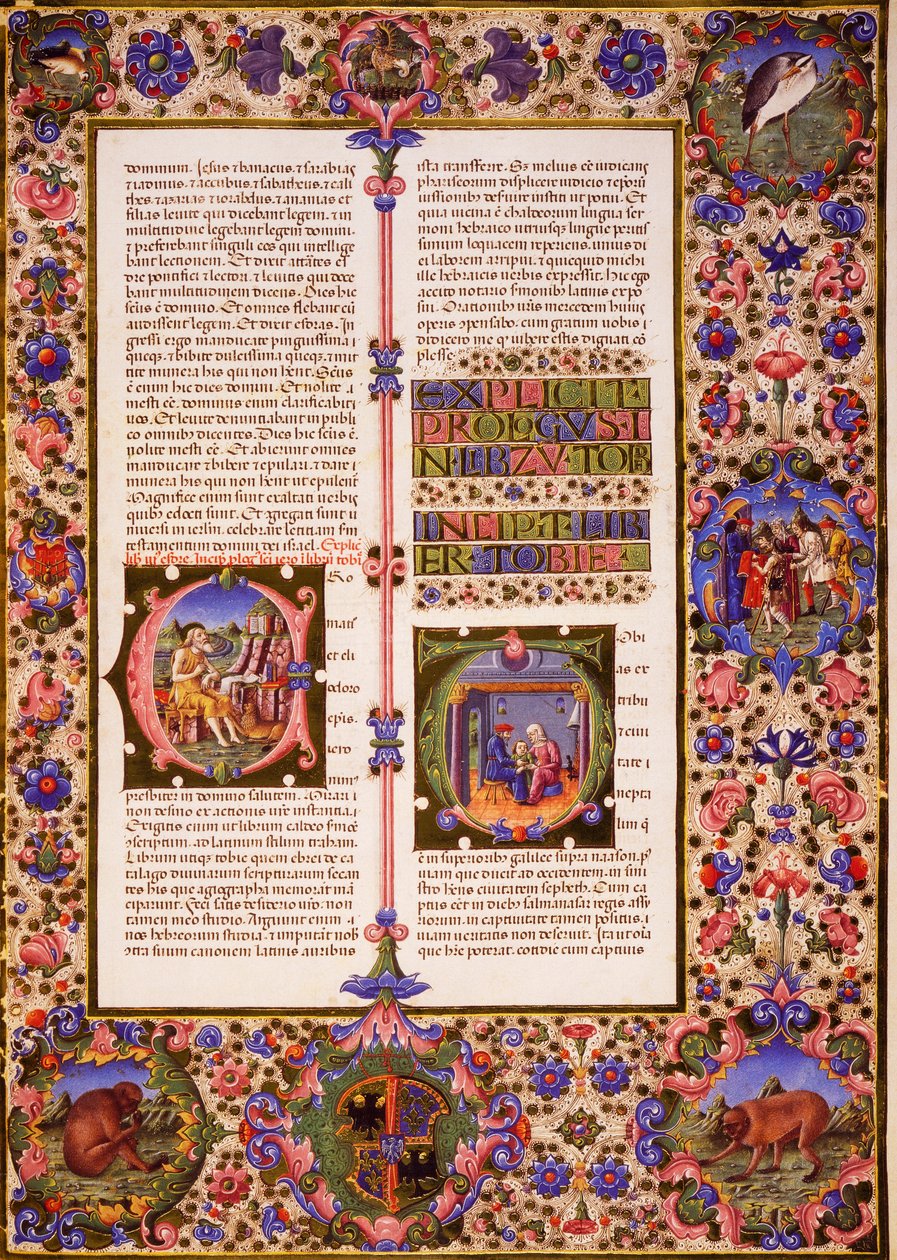 dominum. Jesus ⁊ banacus ⁊ sarabias
⁊ iadinus. ⁊ accubus. ⁊ sabatheus. ⁊ cali
thes. ⁊ azarias ⁊ iorabdus. ⁊ ananias et
filias leuite qui dicebant legem. ⁊ in
multitudine legebant legem domini.
⁊ preferebant singuli eos qui intellige
bant lectionem. Et dixit attãtes es
dre pontifici ⁊ lectori. ⁊ leuitis qui doce
bant multitudinem dicens. Dies hic
scũs ẽ domino. Et omnes flebant cũ
audissent legem. Et dixit esdras. In
gressi ergo manducate pinguissima
queqʒ. ⁊ bibite dulcissima queqʒ. ⁊ mit
tite munera his qui non hẽnt. Scũs
ẽ enim hic dies domini. Et nolite
mesti ẽẽ. dominus enim clarificabit
uos. Et leuite denuntiabant in publi
co omnibʒ dicentes. Dies hic scũs ẽ.
nolite mesti ẽẽ. Et abierunt omnes
manducare ⁊ bibere ⁊ epulari. ⁊ dare
munera his qui non hẽnt ut epulent̃
Magnifice enim sunt exaltati uerbis
quibʒ edocti sunt. Et gregati sunt ũ
niuersi in ierlm̃. celebrare letitiam sm̃
testamentum domini dei israel. Explic̃
lib̃ iiiꝰ esdre. Incip̃ plogꝰ sc̃i iero ĩ librũ tobĩ
C
Ro
mati
et eli
odoro
ep̃is.
iero
nimꝰ
presbiter in domino salutem. Mirari
non desino exactionis ur̃e instantiã.
Exigitis enim ut librum caldeo sm̃oẽ
ↄscriptum. ad latinum stilum traham.
Librum utiqʒ tobie quem ebrei de ca
talago diuinarum scripturarum secan
tes his que agiographa memorãt mã
ciparunt. Feci satis desiderio uro. non
tamen meo studio. Arguunt enim
nos hebreorum studia. ⁊ imputãt nob̃
ↄtra suum canonem latinis auribus
ista transferre. Sʒ melius ẽẽ iudicans
phariseorum displicere iudicio ⁊ ep̃orũ
iussionibʒ deseruire. institi ut potui. Et
quia uicina ẽ chaldeorum lingua ser
moni hebraico. utriusqʒ lingue periti
simum loquacem reperiens. unius di
ei laborem arripui. ⁊ quicquid michi
ille hebraicis uerbis expressit. hic ego
accito notario sermonibʒ latinis expo
sui. Orationibʒ ur̃is mercedem huius
operis ↄpensabo. cum gratum uobis
didicero me qʒ iubere estis dignati cõ
plesse
EXPLICIT
PROLOGVS I
N LIB ZV TOB
INCIPIT LIB
ER TOBIE
T
Obi
as ex
tribu
⁊ ciui
tate
nepta
lim q̃
ẽ in superioribʒ galilee supra naason. p⁹
uiam que ducit ad occidentem. in sini
stro hẽns ciuitatem sepheth. Cum ca
ptus eẽt in diebʒ salmanasar regis assy
riorum. in captiuitate tamen positus.
uiam ueritatis non deseruit. Ita ut oĩa
que hr̃e poterat. cottidie cum captiuis